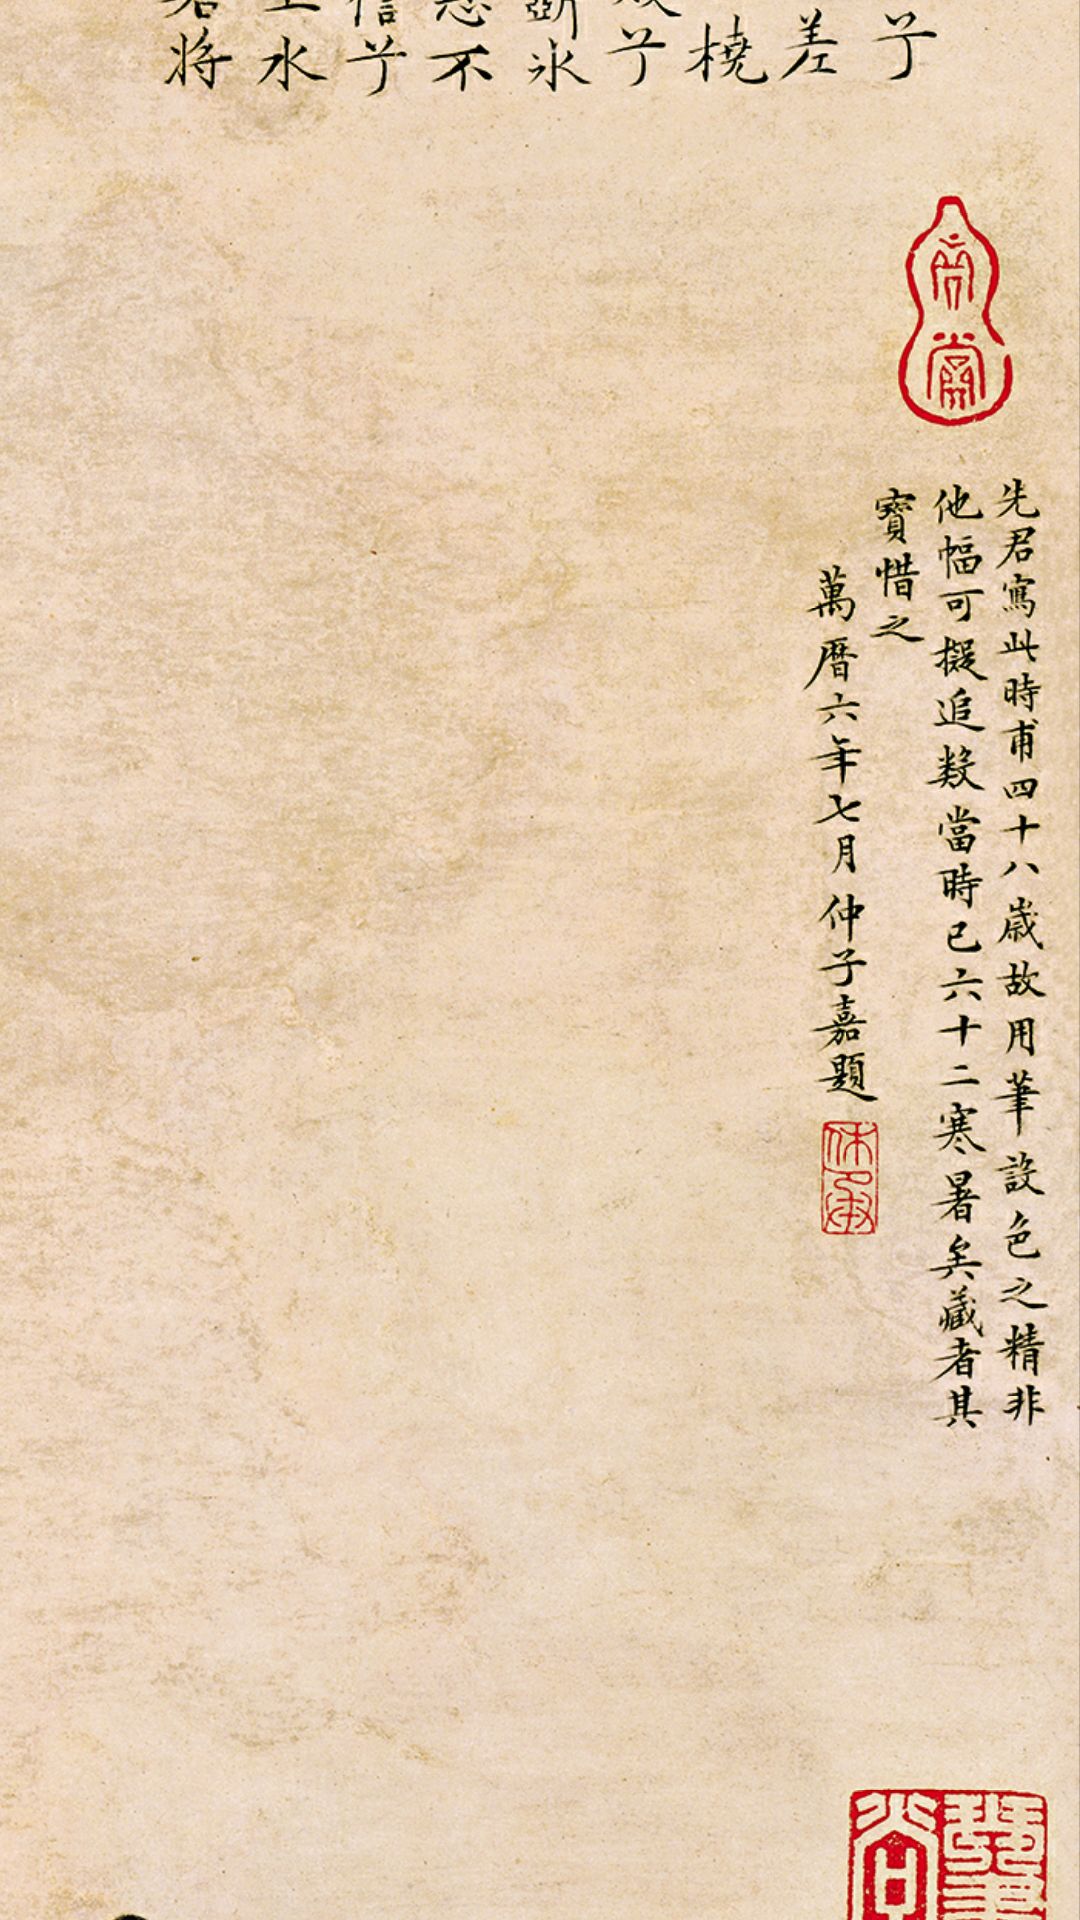 兮
差
橈
兮
氷
不
信兮
水
君将
先君寫此時甫四十八歲故用筆設色之精非
他幅可擬追數當時已六十二寒暑矣藏者其
寶惜之
萬曆六年七月仲子嘉題
休承